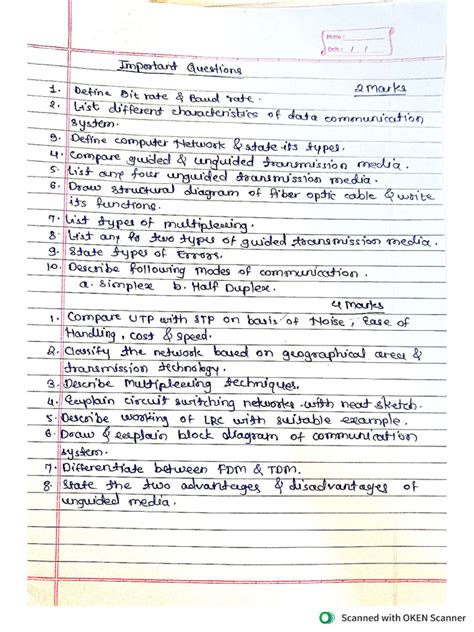 Name :
Date : / /
Important Questions
2 Marks
1. Define Bit rate & Baud rate.
2. List different characteristics of data communication
system.
3. Define computer Network & state its types.
4. Compare guided & unguided transmission media.
5. List any four unguided transmission media.
6. Draw structural diagram of fiber optic cable & write
its functions.
7. List types of multiplexing.
8. List any two types of guided transmission media.
9. State types of Errors.
10. Describe following modes of communication.
a. Simplex b. Half Duplex.
4 Marks
1. Compare UTP with STP on basis of Noise, Ease of
Handling, cost & speed.
2. Classify the network based on geographical area &
transmission technology.
3. Describe Multiplexing techniques.
4. Explain circuit switching networks with neat sketch.
5. Describe working of LRC with suitable example.
6. Draw & explain block diagram of communication
system.
7. Differentiate between FDM & TDM.
8. State the two advantages & disadvantages of
unguided media.
Scanned with OKEN Scanner